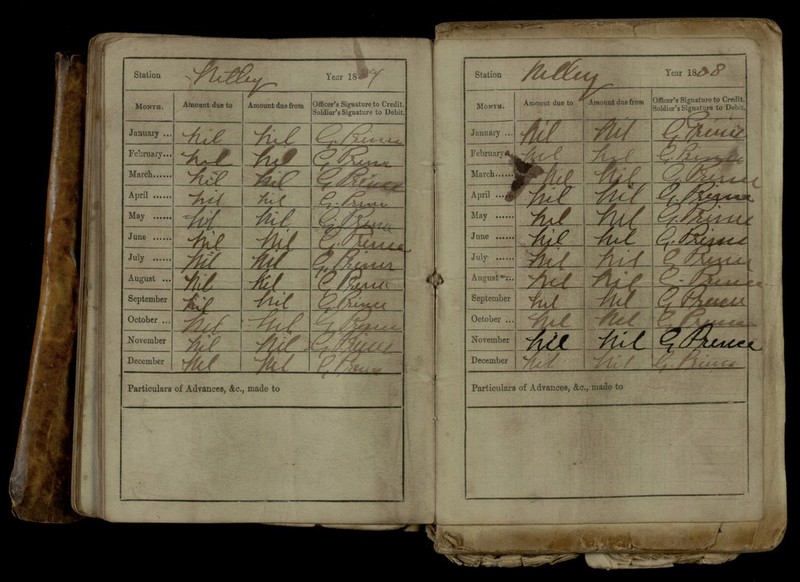 Station Netley Year 18
MONTH. Amount due to Amount due from Officer's Signature to Credit. Soldier's Signature to Debit.
January ... Nil Nil G. Prince
February... Nil Nil G. Prince
March...... Nil Nil G. Prince
April ...... Nil Nil G. Prince
May ...... Nil Nil G. Prince
June ...... Nil Nil G. Prince
July ...... Nil Nil G. Prince
August ... Nil Nil G. Prince
September Nil Nil G. Prince
October ... Nil Nil G. Prince
November Nil Nil G. Prince
December Nil Nil G. Prince
Particulars of Advances, &c., made to
Station Netley Year 1888
MONTH. Amount due to Amount due from Officer's Signature to Credit. Soldier's Signature to Debit.
January ... Nil Nil G. Prince
February Nil Nil G. Prince
March...... Nil Nil G. Prince
April ... Nil Nil G. Prince
May ...... Nil Nil G. Prince
June ...... Nil Nil G. Prince
July ...... Nil Nil G. Prince
August ... Nil Nil G. Prince
September Nil Nil G. Prince
October ... Nil Nil G. Prince
November Nil Nil G. Prince
December Nil Nil G. Prince
Particulars of Advances, &c., made to